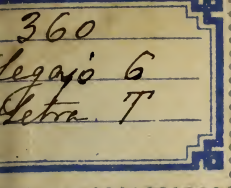 360
Legajo 6
Letra T